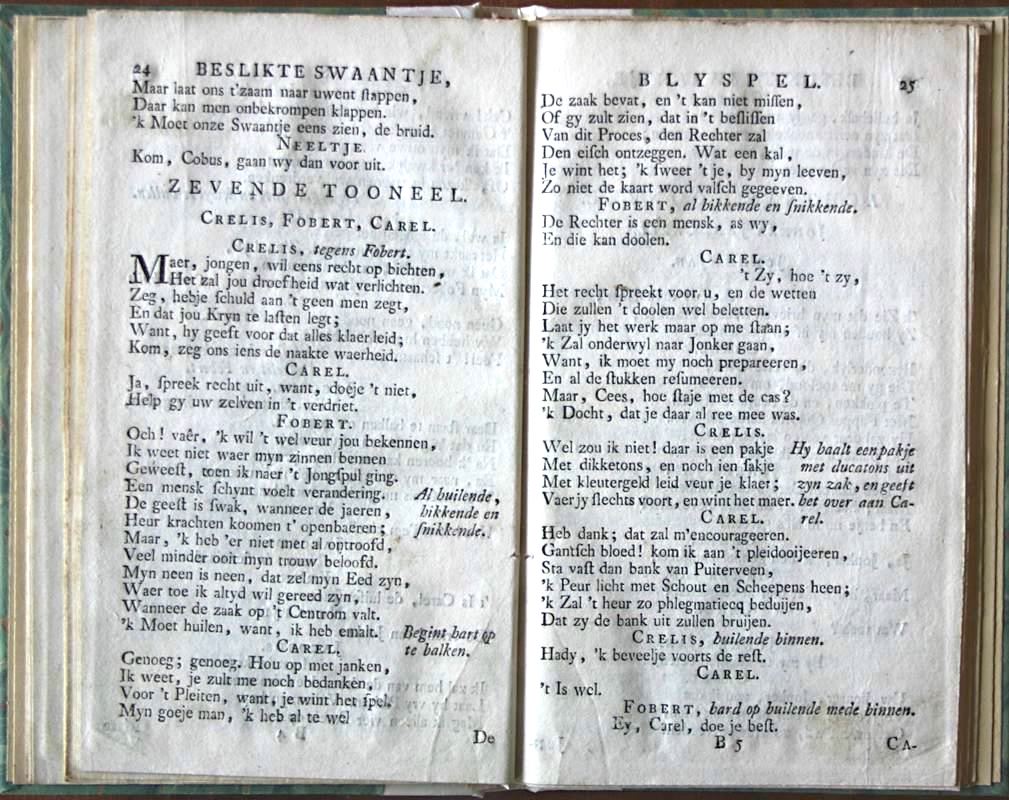 24 BESLIKTE SWAANTJE,
Maar laat ons t'zaam naar uwent ſtappen,
Daar kan men onbekrompen klappen.
'k Moet onze Swaantje eens zien, de bruid.
NEELTJE.
Kom, Cobus, gaan wy dan voor uit.
ZEVENDE TOONEEL.
CRELIS, FOBERT, CAREL.
CRELIS, tegens Fobert.
Maer, jongen, wil eens recht op bichten,
Het zal jou droefheid wat verlichten.
Zeg, hebje ſchuld aan 't geen men zegt,
En dat jou Kryn te laſten legt;
Want, hy geeft voor dat alles klaer leid;
Kom, zeg ons iens de naakte waerheid.
CAREL.
Ja, ſpreek recht uit, want, doeje 't niet,
Help gy uw zelven in 't verdriet.
FOBERT.
Och! vaêr, 'k wil 't wel veur jou bekennen,
Ik weet niet waer myn zinnen bennen
Geweeſt, toen ik naer 't Jongſpul ging.
Een mensk ſchynt voelt verandering. Al builende,
De geeſt is ſwak, wanneer de jaeren, hikkende en
Heur krachten koomen t' openbaeren; ſnikkende.
Maar, 'k heb 'er niet met al optroofd,
Veel minder ooit myn trouw beloofd.
Myn neen is neen, dat zel myn Eed zyn,
Waer toe ik altyd wil gereed zyn,
Wanneer de zaak op 't Centrom valt.
'k Moet huilen, want, ik heb emalt. Begint hart op
CAREL. te balken.
Genoeg; genoeg. Hou op met janken,
Ik weet, je zult me noch bedanken,
Voor 't Pleiten, want, je wint het ſpel.
Myn goeje man, 'k heb al te wel
B 4 De
BLYSPEL. 25
De zaak bevat, en 't kan niet miſſen,
Of gy zult zien, dat in 't beſliſſen
Van dit Proces, den Rechter zal
Den eiſch ontzeggen. Wat een kal,
Je wint het; 'k ſweer 't je, by myn leeven,
Zo niet de kaart word valſch gegeeven.
FOBERT, al hikkende en ſnikkende.
De Rechter is een mensk, as wy,
En die kan doolen.
CAREL.
't Zy, hoe 't zy,
Het recht ſpreekt voor u, en de wetten
Die zullen 't doolen wel beletten.
Laat jy het werk maar op me ſtaan;
'k Zal onderwyl naar Jonker gaan,
Want, ik moet my noch prepareeren,
En al de ſtukken reſumeeren.
Maar, Cees, hoe ſtaje met de cas?
'k Docht, dat je daar al ree mee was.
CRELIS.
Wel zou ik niet! daar is een pakje Hy haalt een pakje
Met dikketons, en noch ien ſakje met ducatons uit
Met kleutergeld leid veur je klaer; zyn zak, en geeft
Vaer jy ſlechts voort, en wint het maer. het over aan Ca-
CAREL. rel.
Heb dank; dat zal m'encourageeren.
Gantſch bloed! kom ik aan 't pleidooijeeren,
Sta vaſt dan bank van Puiterveen,
'k Peur licht met Schout en Scheepens heen;
'k Zal 't heur zo phlegmatiecq beduijen,
Dat zy de bank uit zullen bruijen.
CRELIS, builende binnen.
Hady, 'k beveelje voorts de reſt.
CAREL.
't Is wel.
FOBERT, hard op builende mede binnen.
Ey, Carel, doe je beſt.
B 5 CA-